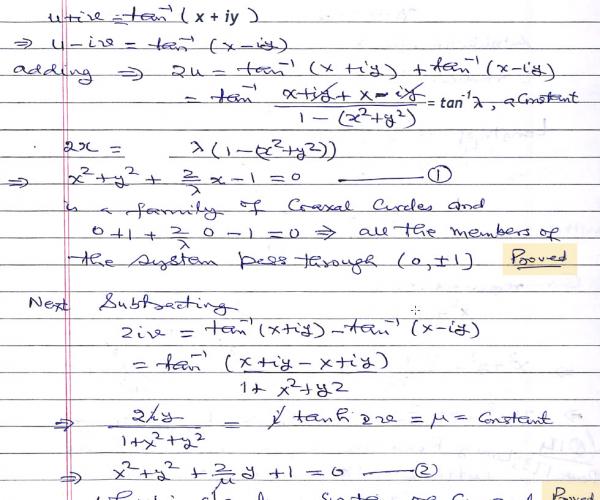 u+iv = tan⁻¹ ( x + iy )
⇒ u-iv = tan⁻¹ (x-iy)
adding ⇒ 2u = tan⁻¹ (x+iy) + tan⁻¹ (x-iy)
= tan⁻¹ (x+iy + x-iy) / (1-(x²+y²)) = tan⁻¹ λ, a Constant
2x = λ(1-(x²+y²))
⇒ x²+y² + 2/λ x - 1 = 0 — ①
is a family of Coaxal Circles and
0+1 + 2/λ 0 - 1 = 0 ⇒ all the members of
the system pass through (0, ±1] Proved
Next Subtracting
2iv = tan⁻¹ (x+iy) - tan⁻¹ (x-iy)
= tan⁻¹ (x+iy-x+iy) / (1+ x²+y2)
⇒ 2iy / (1+x²+y²) = i tanh 2v = μ = Constant
⇒ x²+y² + 2/μ y + 1 = 0 — ②
Proved